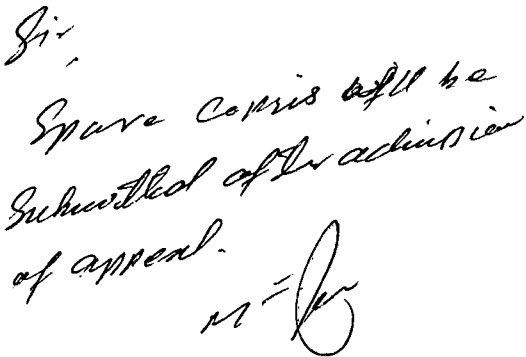 Sir,
Spare copies will be
submitted after admission
of appeal.